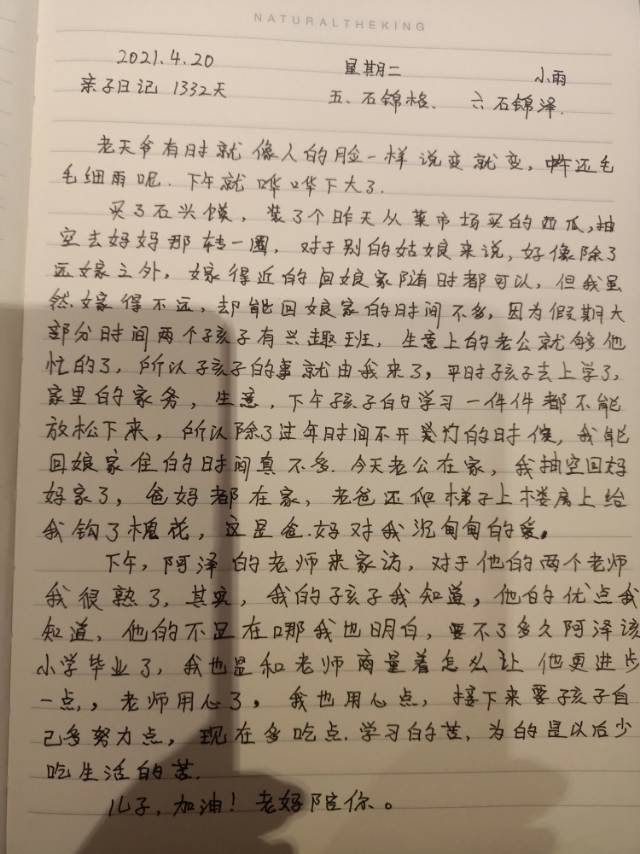 NATURALTHEKING
2021.4.20 星期二 小雨
亲子日记 1332天 五.石锦格. 六石锦泽.
老天爷有时就像人的脸一样说变就变,昨还毛
毛细雨呢.下午就哗哗下大了.
买了石兴馍,装了个昨天从菜市场买的西瓜,抽
空去妈妈那转一圈,对于别的姑娘来说,好像除了
远嫁之外,嫁得近的回娘家随时都可以,但我虽
然嫁得不远,却能回娘家的时间不多,因为假期大
部分时间两个孩子有兴趣班,生意上的老公就够他
忙的了,所以孩子的事就由我来了,平时孩子去上学了,
家里的家务,生意,下午孩子的学习一件件都不能
放松下来,所以除了过年时间不开 灯的时候,我能
回娘家住的时间真不多.今天老公在家,我抽空回妈
妈家了,爸妈都在家,老爸还爬梯子上楼房上给
我钩了槐花,这是爸.妈对我沉甸甸的爱。
下午,阿泽的老师来家访,对于他的两个老师
我很熟了,其实,我的孩子我知道,他的优点我
知道,他的不足在哪我也明白,要不了多久阿泽该
小学毕业了,我也是和老师商量着怎么让他更进步
一点,,老师用心了,我也用心点,接下来要孩子自
己多努力点,现在多吃点.学习的苦,为的是以后少
吃生活的苦.
儿子,加油!老妈陪你。